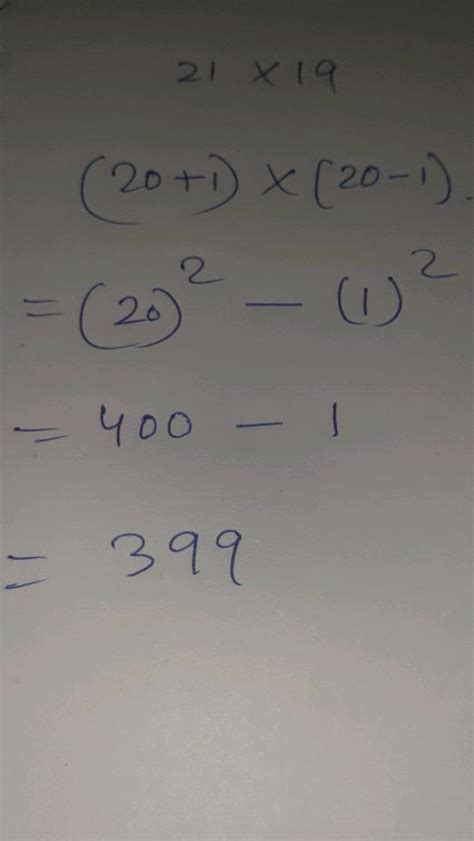 21 × 19
(20+1) × (20-1).
= (20)² - (1)²
= 400 - 1
= 399